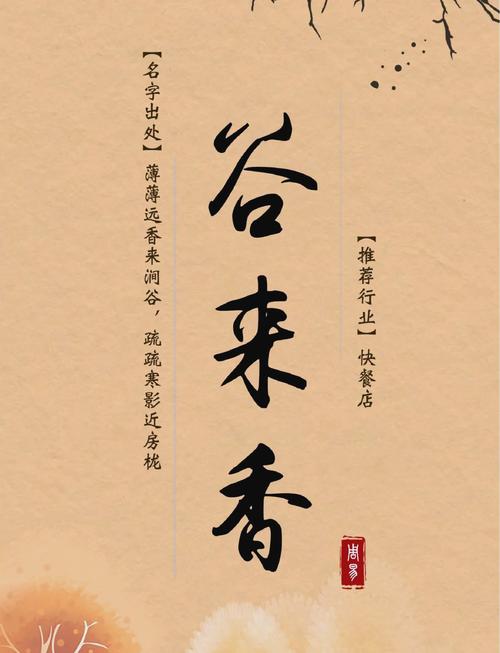 【推荐行业】快餐店
谷来香
【名字出处】薄薄远香来涧谷，疏疏寒影近房栊
周易